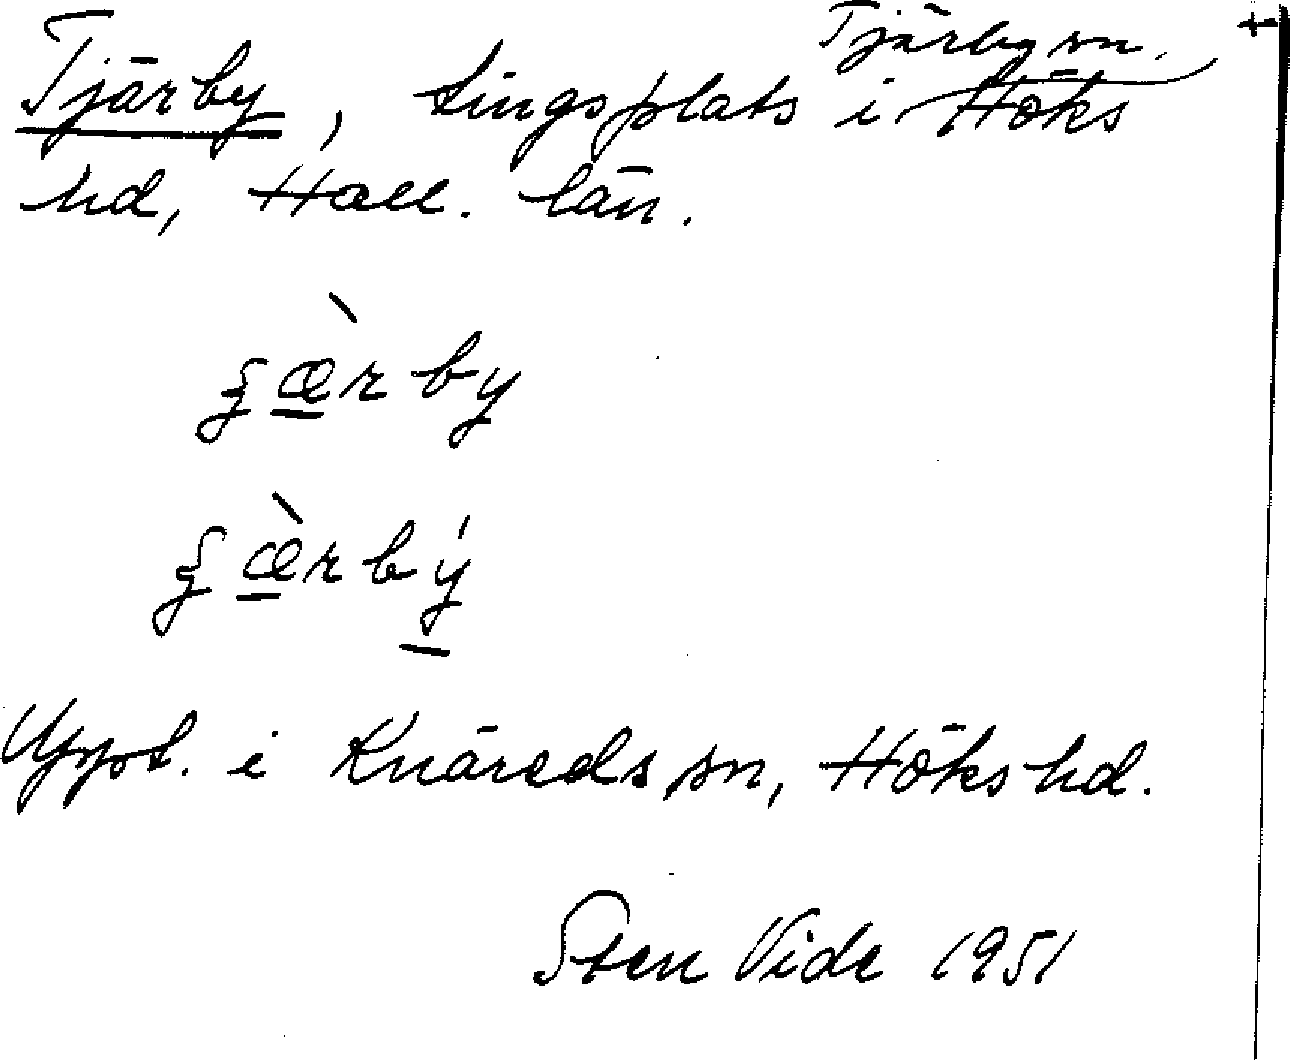 Tjärby sn. +
Tjärby, tingsplats i Höks
hd, Hall. län.
ʒæ̀rby
ʒæ̀rbý
Uppt. i Knäreds sn, Höks hd.
Sten Vide 1951